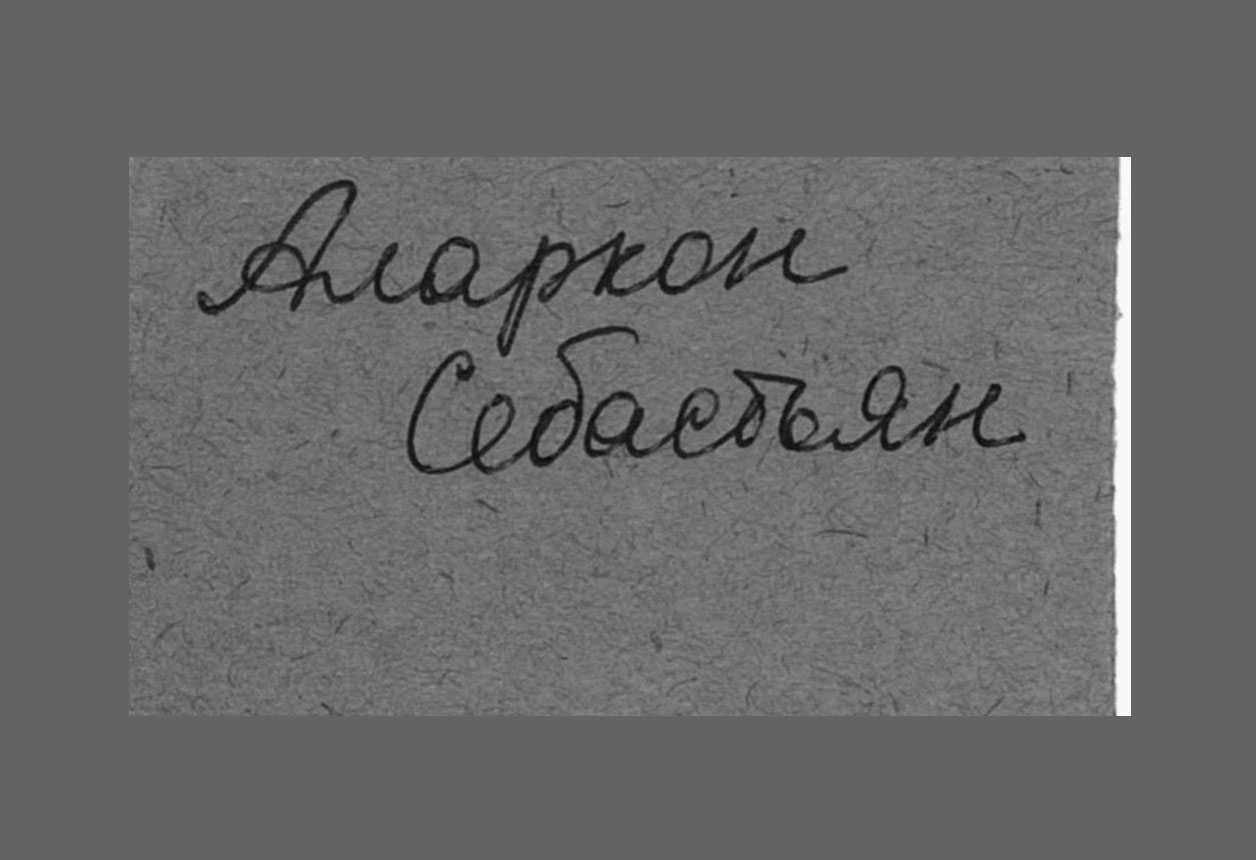 Аларкон
Себастьян